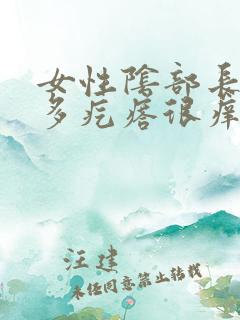 女性阴部长
多疙瘩很痒
汪建
未经同意禁止转载